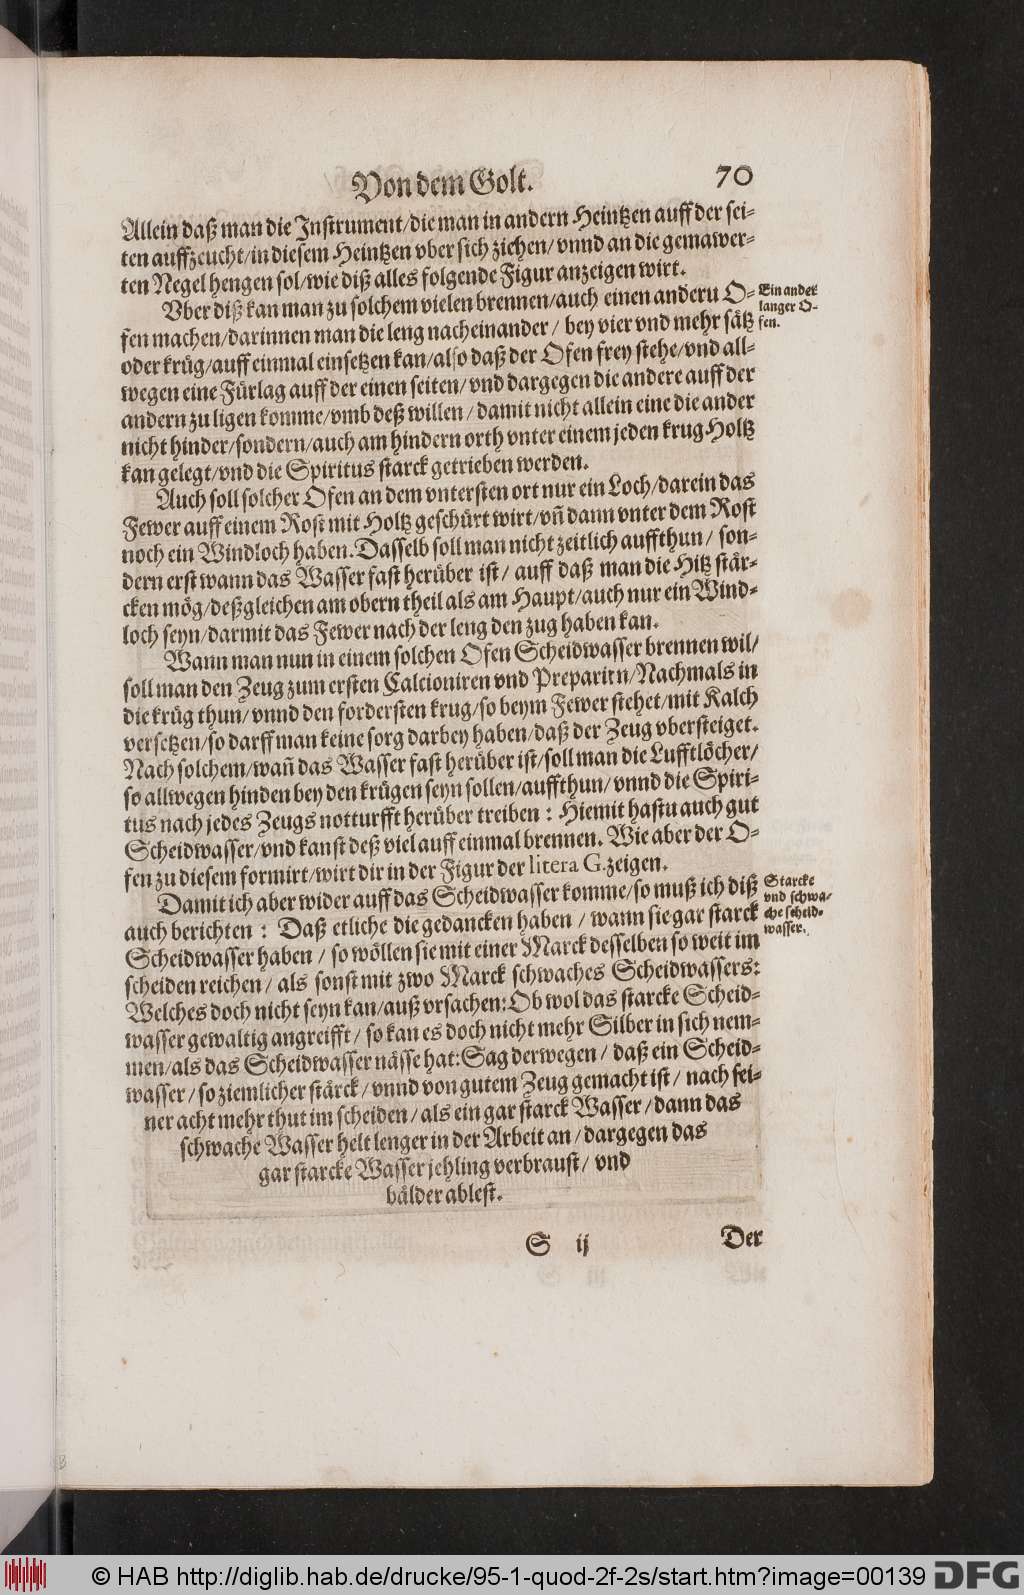 Von dem Golt. 70
Allein daß man die Instrument/die man in andern Heintzen auff der sei-
ten auffzeucht/in diesem Heintzen vber sich ziehen/vnnd an die gemawer-
ten Negel hengen sol/wie diß alles folgende Figur anzeigen wirt.
Vber diß kan man zu solchem vielen brennen/auch einen anderu O-
fen machen/darinnen man die leng nacheinander/ bey vier vnd mehr sätz
oder krüg/auff einmal einsetzen kan/also daß der Ofen frey stehe/vnd all-
wegen eine Fürlag auff der einen seiten/vnd dargegen die andere auff der
andern zu ligen komme/vmb deß willen/ damit nicht allein eine die ander
nicht hinder/sondern/auch am hindern orth vnter einem jeden krug Holtz
kan gelegt/vnd die Spiritus starck getrieben werden.
Ein ander
langer O-
fen.
Auch soll solcher Ofen an dem vntersten ort nur ein Loch/darein das
Fewer auff einem Rost mit Holtz geschürt wirt/vñ dann vnter dem Rost
noch ein Windloch haben. Dasselb soll man nicht zeitlich auffthun/ son-
dern erst wann das Wasser fast herüber ist/ auff daß man die Hitz stär-
cken mög/deßgleichen am obern theil als am Haupt/auch nur ein Wind-
loch seyn/darmit das Fewer nach der leng den zug haben kan.
Wann man nun in einem solchen Ofen Scheidwasser brennen wil/
soll man den Zeug zum ersten Calcioniren vnd Preparirn/Nachmals in
die krüg thun/vnnd den fordersten krug/so beym Fewer stehet/mit Kalch
versetzen/so darff man keine sorg darbey haben/daß der Zeug vbersteiget.
Nach solchem/wañ das Wasser fast herüber ist/soll man die Lufftlöcher/
so allwegen hinden bey den krügen seyn sollen/auffthun/vnnd die Spiri-
tus nach jedes Zeugs notturfft herüber treiben: Hiemit hastu auch gut
Scheidwasser/vnd kanst deß viel auff einmal brennen. Wie aber der O-
fen zu diesem formirt/wirt dir in der Figur der litera G.zeigen.
Damit ich aber wider auff das Scheidwasser komme/so muß ich diß
auch berichten: Daß etliche die gedancken haben/ wann sie gar starck
Scheidwasser haben/ so wöllen sie mit einer Marck desselben so weit im
scheiden reichen/ als sonst mit zwo Marck schwaches Scheidwassers:
Welches doch nicht seyn kan/auß vrsachen: Ob wol das starcke Scheid-
wasser gewaltig angreifft/ so kan es doch nicht mehr Silber in sich nem-
men/als das Scheidwasser nässe hat: Sag derwegen/ daß ein Scheid-
wasser/so ziemlicher stärck/vnnd von gutem Zeug gemacht ist/ nach sei-
ner acht mehr thut im scheiden/als ein gar starck Wasser/dann das
schwache Wasser helt lenger in der Arbeit an/dargegen das
gar starcke Wasser jehling verbraust/ vnd
bälder ablest.
Starcke
vnd schwa-
che scheid-
wasser.
S ij Der
© HAB http://diglib.hab.de/drucke/95-1-quod-2f-2s/start.htm?image=00139 DFG